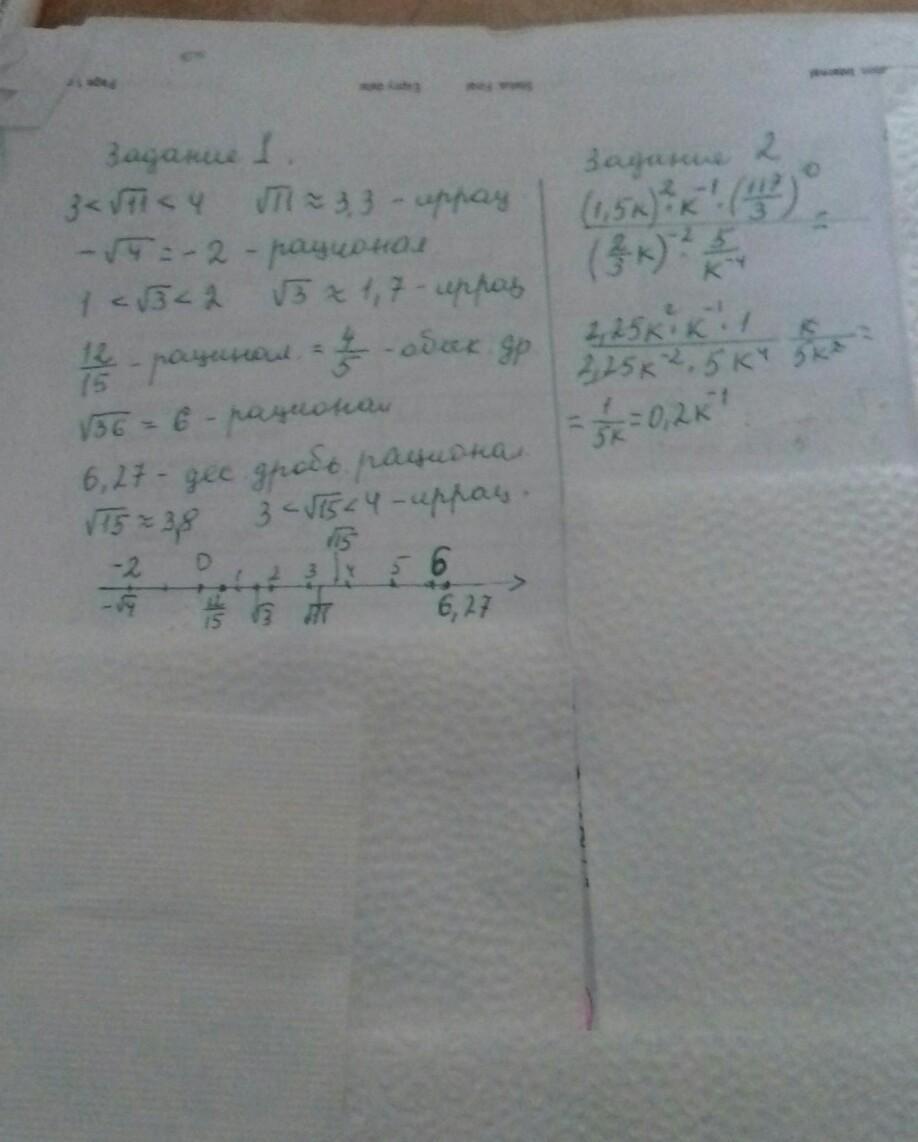 Задание 1.
3 < √11 < 4 √11 ≈ 3,3 - иррац
-√4 = -2 - рационал
1 < √3 < 2 √3 ≈ 1,7 - иррац
12/15 - рацинал. = 4/5 - обык др
√36 = 6 - рационал
6,27 - дес дробь. рационал.
√15 ≈ 3,8 3 < √15 < 4 - иррац.
√15
-2 0 1 2 3 4 5 6
-√4 12/15 √3 √11 6,27
Задание 2
(1,5к)² · к⁻¹ · (117/3)⁰ / (2/3 к)⁻² · 5/к⁻⁴ =
2,25к² · к⁻¹ · 1 / 2,25к⁻² · 5к⁴ к/5к² =
= 1/5к = 0,2к⁻¹